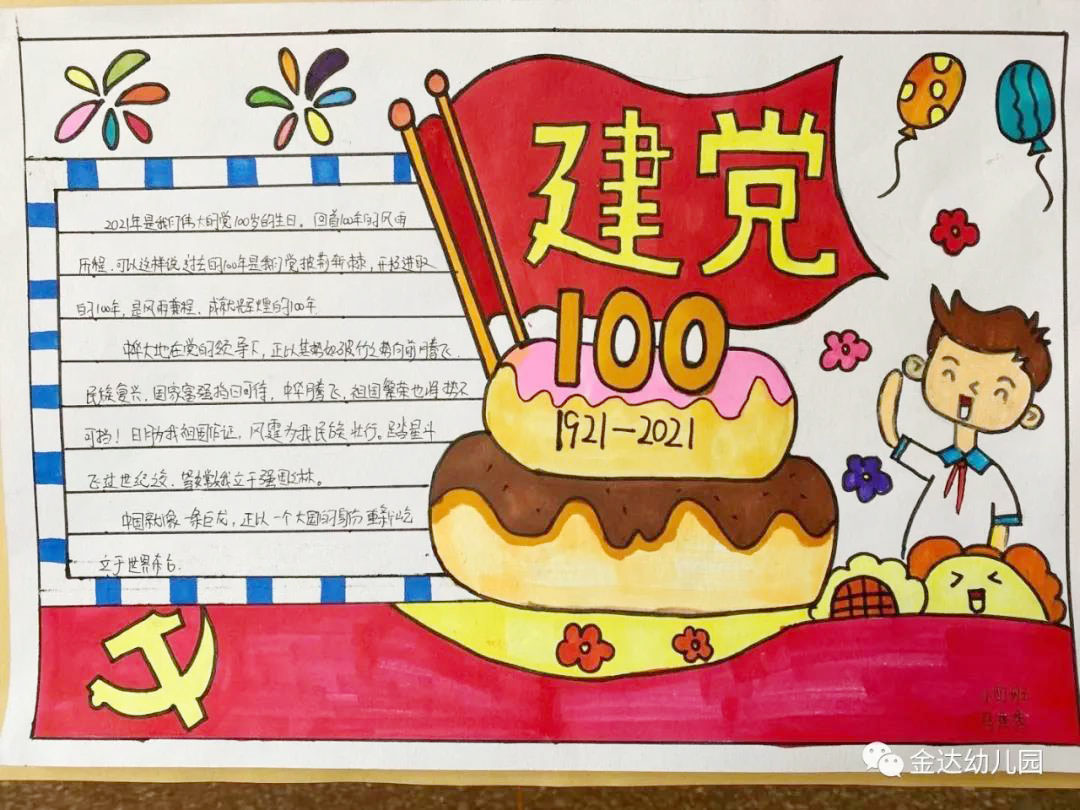 建党
100
1921-2021
2021年是我们伟大的党100岁的生日。回首100年的风雨
历程,可以这样说过去的100年是我们党披荆斩棘,开拓进取
的100年,是风雨兼程、成就辉煌的100年.
中华大地在党的领导下,正以其势如破竹之势向前腾飞.
民族复兴,国家富强指日可待,中华腾飞,祖国繁荣也将势不
可挡!日月为我祖国作证,风霆为我民族壮行。踏星斗
飞过世纪之交,等 我立于强国之林。
中国就像一条巨龙,正以一个大国的身份重新屹
立于世界东方.
金达幼儿园